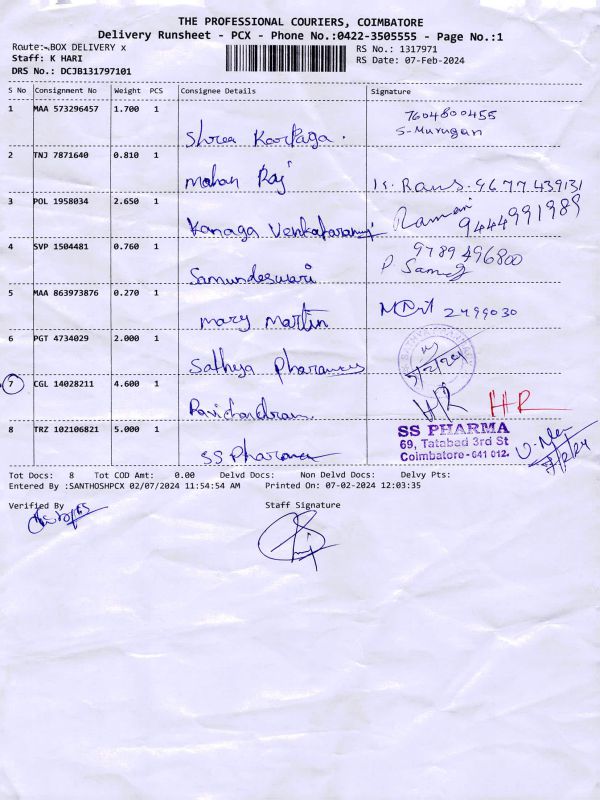 THE PROFESSIONAL COURIERS, COIMBATORE
Delivery Runsheet - PCX - Phone No.:0422-3505555 - Page No.:1
Route:-BOX DELIVERY x
Staff: K HARI
DRS No.: DCJB131797101
RS No.: 1317971
RS Date: 07-Feb-2024
S No Consignment No Weight PCS Consignee Details Signature
1 MAA 573296457 1.700 1 7604800455
S-Murugan
Shree Karpaga.
2 TNJ 7871640 0.810 1
Mohan Raj 9677439131
3 POL 1958034 2.650 1 Raman
Kanaga 9444991989
4 SVP 1504481 0.760 1 9789496800
Samundeswari
5 MAA 863973876 0.270 1
mary martin 2499030
6 PGT 4734029 2.000 1
Sathya
7 CGL 14028211 4.600 1
Ravichandran HR HR
8 TRZ 102106821 5.000 1 SS PHARMA
69, Tatabad 3rd St
Coimbatore-641 012.
SS Pharma
Tot Docs: 8 Tot COD Amt: 0.00 Delvd Docs: Non Delvd Docs: Delvy Pts:
Entered By :SANTHOSHPCX 02/07/2024 11:54:54 AM Printed On: 07-02-2024 12:03:35
Verified By Staff Signature